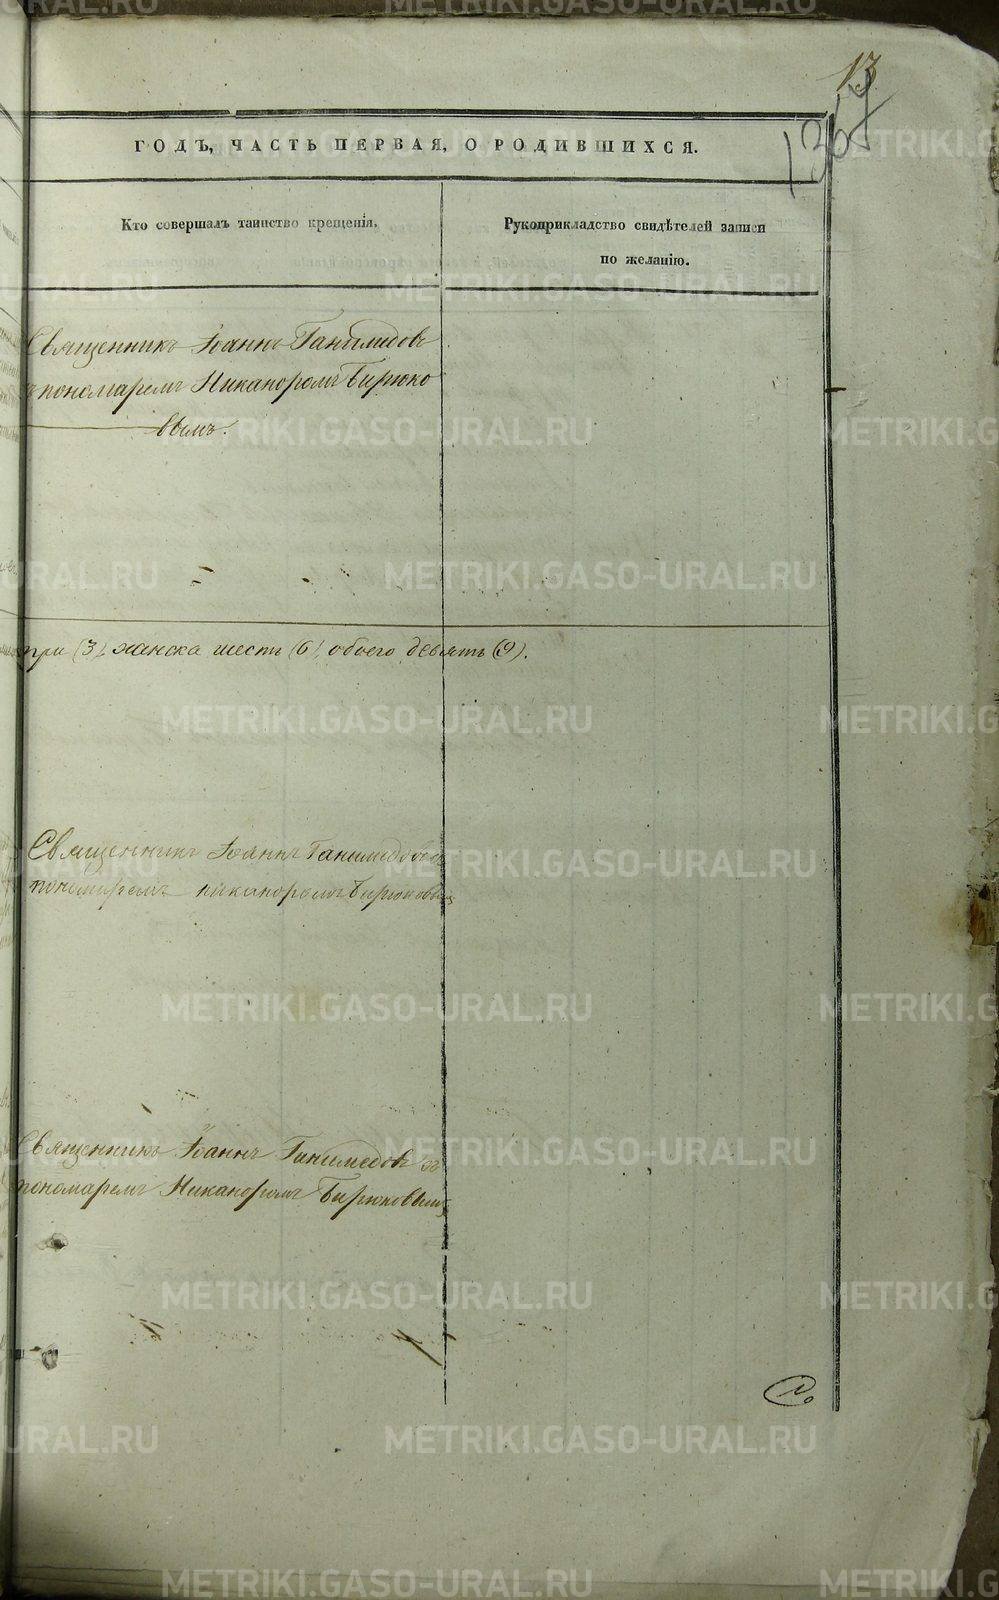 13
1367
ГОДЪ, ЧАСТЬ ПЕРВАЯ, О РОДИВШИХСЯ.
Кто совершалъ таинство крещенія.
Рукоприкладство свидѣтелей записи
по желанію.
Священникъ Іоаннъ Ганимедовъ
съ пономаремъ Никаноромъ Бирюко
вымъ.
три (3), женска шесть (6), обоего девять (9).
Священникъ Іоаннъ Ганимедовъ съ
пономаремъ Никаноромъ Бирюковымъ
Священникъ Іоаннъ Ганимедовъ съ
пономаремъ Никаноромъ Бирюковымъ
METRIKI.GASO-URAL.RU